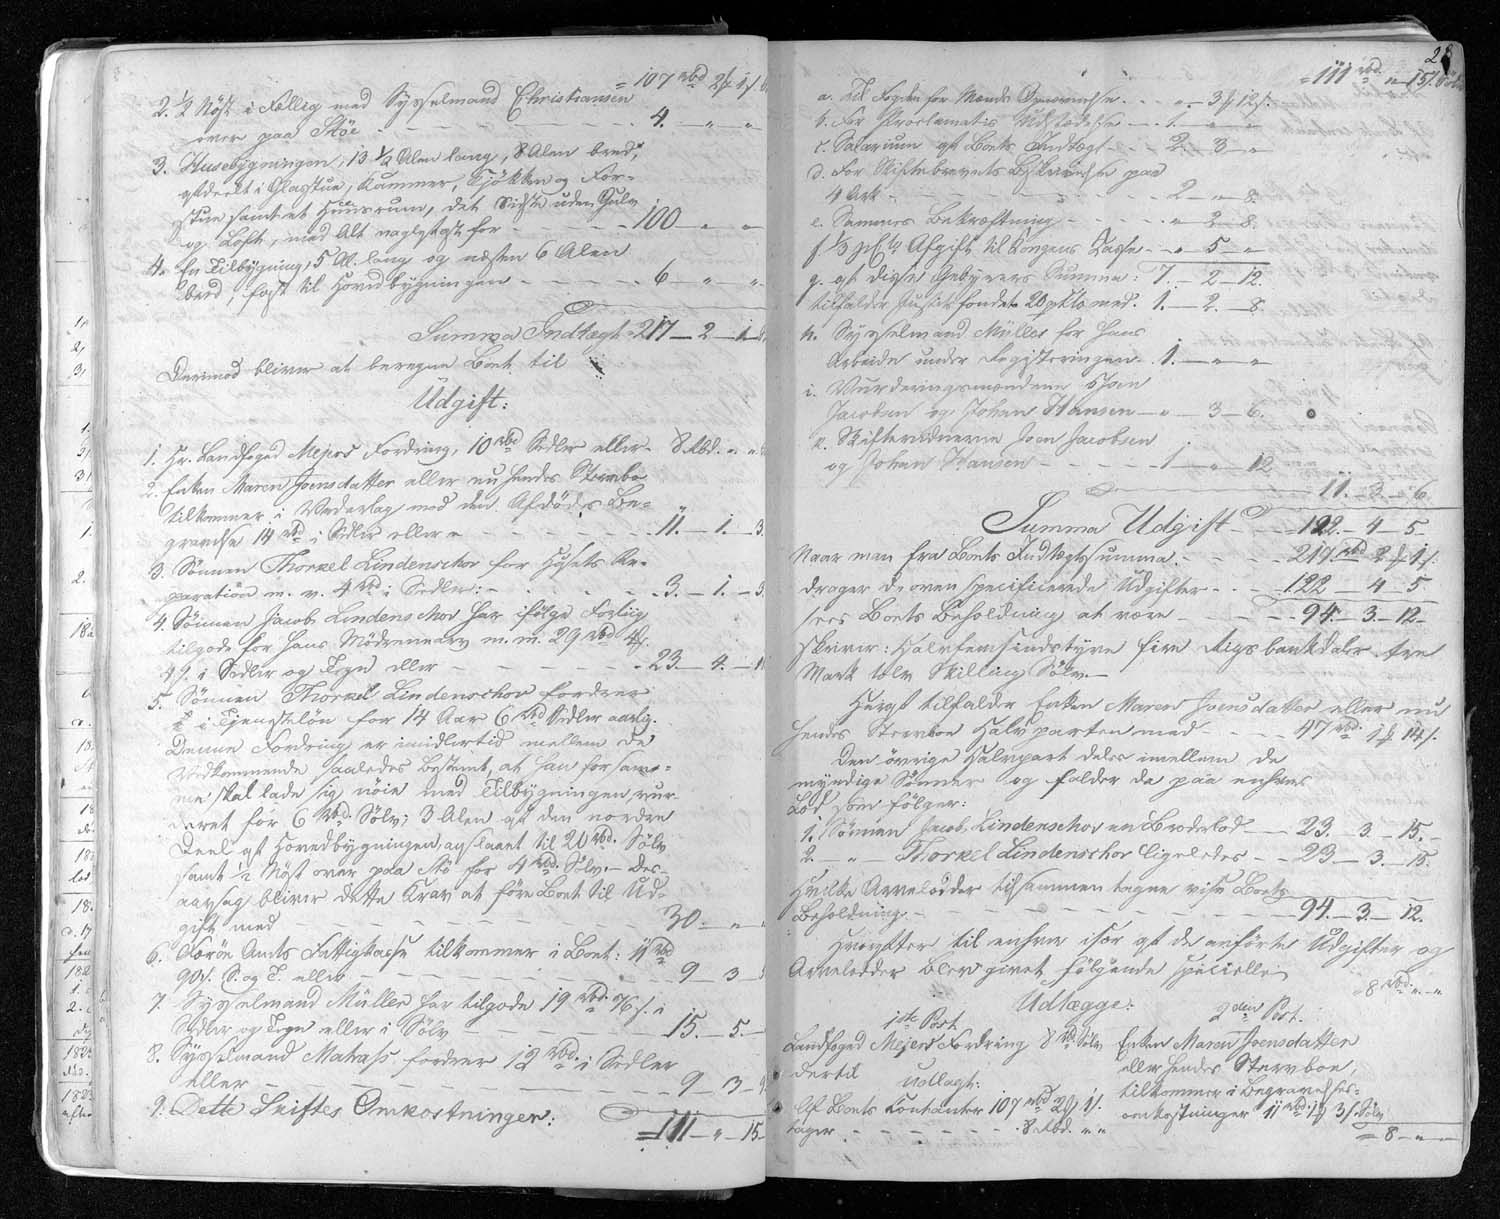 = 107 rbd 2 ℳ 1 ſ.
2. ½ Nöst i Fællig med Sysselmand Christiansen
over paa Stöe - - - 4. - " - "
3. Husebygningen, 13 ½ Alen lang, 8 Alen bred,
afdeelt i Glasstue, Kammer, Kjökken og For-
stue samt et Huusrum, det Sidste uden Gulv
og Loft, med Alt nagelfast for - - - 100 - " - "
4. En Tilbygning, 5 Al. lang og næsten 6 Alen
bred, fast til Hovedbygningen - - - 6 - " - "
Summa Indtægt = 217 - 2 - 1
Derimod bliver at beregne Boet til
Udgift:
1. Hr. Landfoged Mejers Fordring, 10 rbd Sedler eller - 8 Rbd. " "
2. Enken Maren Joensdatter eller nu hendes Stervboe
tilkommer i Vederlag mod den Afdödes Be-
gravelse 14 rbd i Sedler eller - - - 11. - 1. - 3.
3. Sönnen Thorkel Lindenschov for Husets Re-
paration m. v. 4 rbd i Sedler: - - - 3. - 1. - 3
4. Sönnen Jacob Lindenschov har ifölge Forliig
tilgode for hans Mödrenearv m. m. 29 rbd 4 ℳ
4 ſ. i Sedler og Tegn eller - - - 23. - 4. -
5. Sönnen Thorkel Lindenschov fordrer
i Tjenestelön for 14 Aar 6 rbd Sedler aarlig.
Denne Fordring er imidlertid mellem de
Vedkommende saaledes bestemt, at han for sam-
me skal lade sig nöie med Tilbygningen, vur-
deret for 6 Rbd Sölv; 3 Alen af den nordre
Deel af Hovedbygningen, anslaaet til 20 rbd. Sölv
samt ½ Nöst over paa Stö for 4 rbd Sölv. - Des-
aarsag bliver dette Krav at före Boet til Ud-
gift med - - - 30 - " - "
6. Færöe Amts Fattigkasse tilkommer i Boet: 11 rbd
90 ſ. S. og T. eller - - - 9 - 3
7. Sysselmand Müller har tilgode 19 rbd. 76 ſ. i
Sedler og Tegn eller i Sölv - - - 15. - 5. -
8. Sysselmand Matras fordrer 12 rbd. i Sedler
eller - - - 9 - 3 - 9
9. Dette Skiftes Omkostninger:
= 111 - " - 15 -
28
= 111 rbd. " 15 ſ. Sölv
a. Til Fogden for Mænds Opnævnelse - - - " - 3 ℳ 12 ſ.
b. For Proclamatis Udstædelse - - 1. " "
c. Salarium af Boets Indtægt - - 2. 3 - "
d. For Skiftebrevets Beskrivelse paa
4 Ark - - - 2 - " - 8.
e. Sammes Bekræftning - - - " - 2 - 8.
f. ⅓ pCto Afgift til Kongens Casse - " - 5 - "
g. af disse Gebyrers Summa: 7. - 2 - 12.
tilfalder Justitsfondet 20 pCto med. 1. - 2. - 8.
h. Sysselmand Müller for hans
Arbeide under Registeringen - 1. - " - "
i. Vurderingsmændene Joen
Jacobsen og Johan Hansen - " - 3 - 6.
k. Skifterednerne Joen Jacobsen
og Johan Hansen - - - 1 - " - 12
11. - 3 - 6
Summa Udgift - 122. - 4 - 5 -
Naar man fra Boets Indtægtssumma - - - 217 rbd 2 ℳ 1 ſ.
drager de oven specificerede Udgifter - - - 122 - 4 - 5
sees Boets Beholdning at være - - - 94. - 3. - 12 -
skriver: Halvfemsindstyve fire Rigsbankdaler tre
Mark tolv Skilling Sölv. -
Heraf tilfalder Enken Maren Joensdatter eller nu
hendes Stervboe Halvparten med - - - 47 rbd. 1 ℳ 14 ſ.
Den övrige Halvpart deles imellem de
myndige Sönner og falder da paa enhvers
Lod som fölger:
1. Sönnen Jacob Lindenschov en Broderlod - - 23. 3. - 15. -
2. - " - Thorkel Lindenschov ligeledes - - 23 - 3. - 15.
Hvilke Arvelodder tilsammen tagne vise Boets
Beholdning - - - 94. - 3. - 12.
Hvorefter til enhver især af de anförte Udgifter og
Arvelodder blev givet fölgende specielle
Udlægge:
1ste Post.
Landfoged Mejers Fordring 8 rbd Sölv
dertil
udlagt:
Af Boets Contanter 107 rbd 2 ℳ 1 ſ.
tager - - - 8 Rbd. " "
= 8 rbd. " - "
2den Post.
Enken Maren Joensdatter
eller hendes Stervboe,
tilkommer i Begravelses-
omkostninger 11 rbd 1 ℳ 3 ſ. Sölv
= 8 - " - "